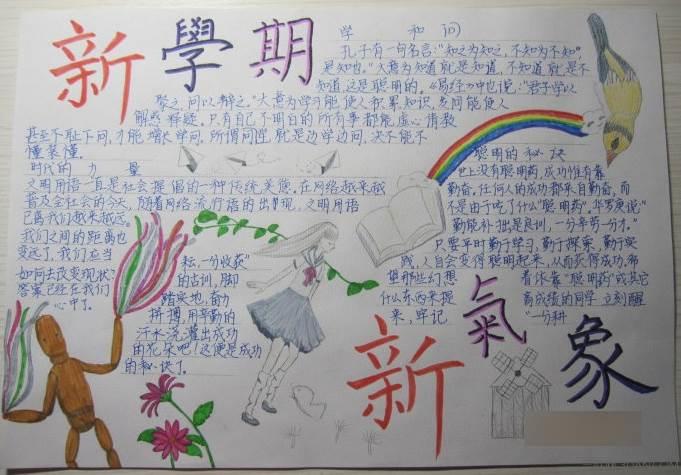 新學期
学 和 问
孔子有一句名言："知之为知之，不知为不知，
是知也。"大意为知道就是知道，不知道就是不
知道，这是聪明的。《易经》中也说："君子学以
聚之，问以辩之。"大意为学习能使人积累知识，发问能使人
解惑释疑。只有自己不明白的所有事都能虚心请教
甚至不耻下问，才能增长学问。所谓问性就是边学边问，决不能不
懂装懂。
时代的力量
文明用语一直是社会提倡的一种传统美德，在网络越来越
普及全社会的今天，随着网络流行语的出现，文明用语
已离我们越来越远，
我们之间的距离也
变远了，我们应当
如何去改变现状？
答案已经在我们
心中了。
聪明的秘诀
世上没有聪明药，成功惟有靠
勤奋。任何人的成功都来自勤奋，而
不是由于吃了什么"聪明药"。华罗庚说："
勤能补拙是良训，一分辛劳一分才。"
只要平时勤于学习，勤于探索，勤于实
践，人自会变得聪明起来，从而获得成功。希
望那些幻想 着依靠"聪明药"或其它
什么东西来提 高成绩的同学 立刻醒
来，牢记 "一分耕
耘，一分收获"
的古训，脚
踏实地，奋力
拼搏，用辛勤的
汗水浇灌出成功
的花朵吧！这便是成功
的秘诀了。
新氣象